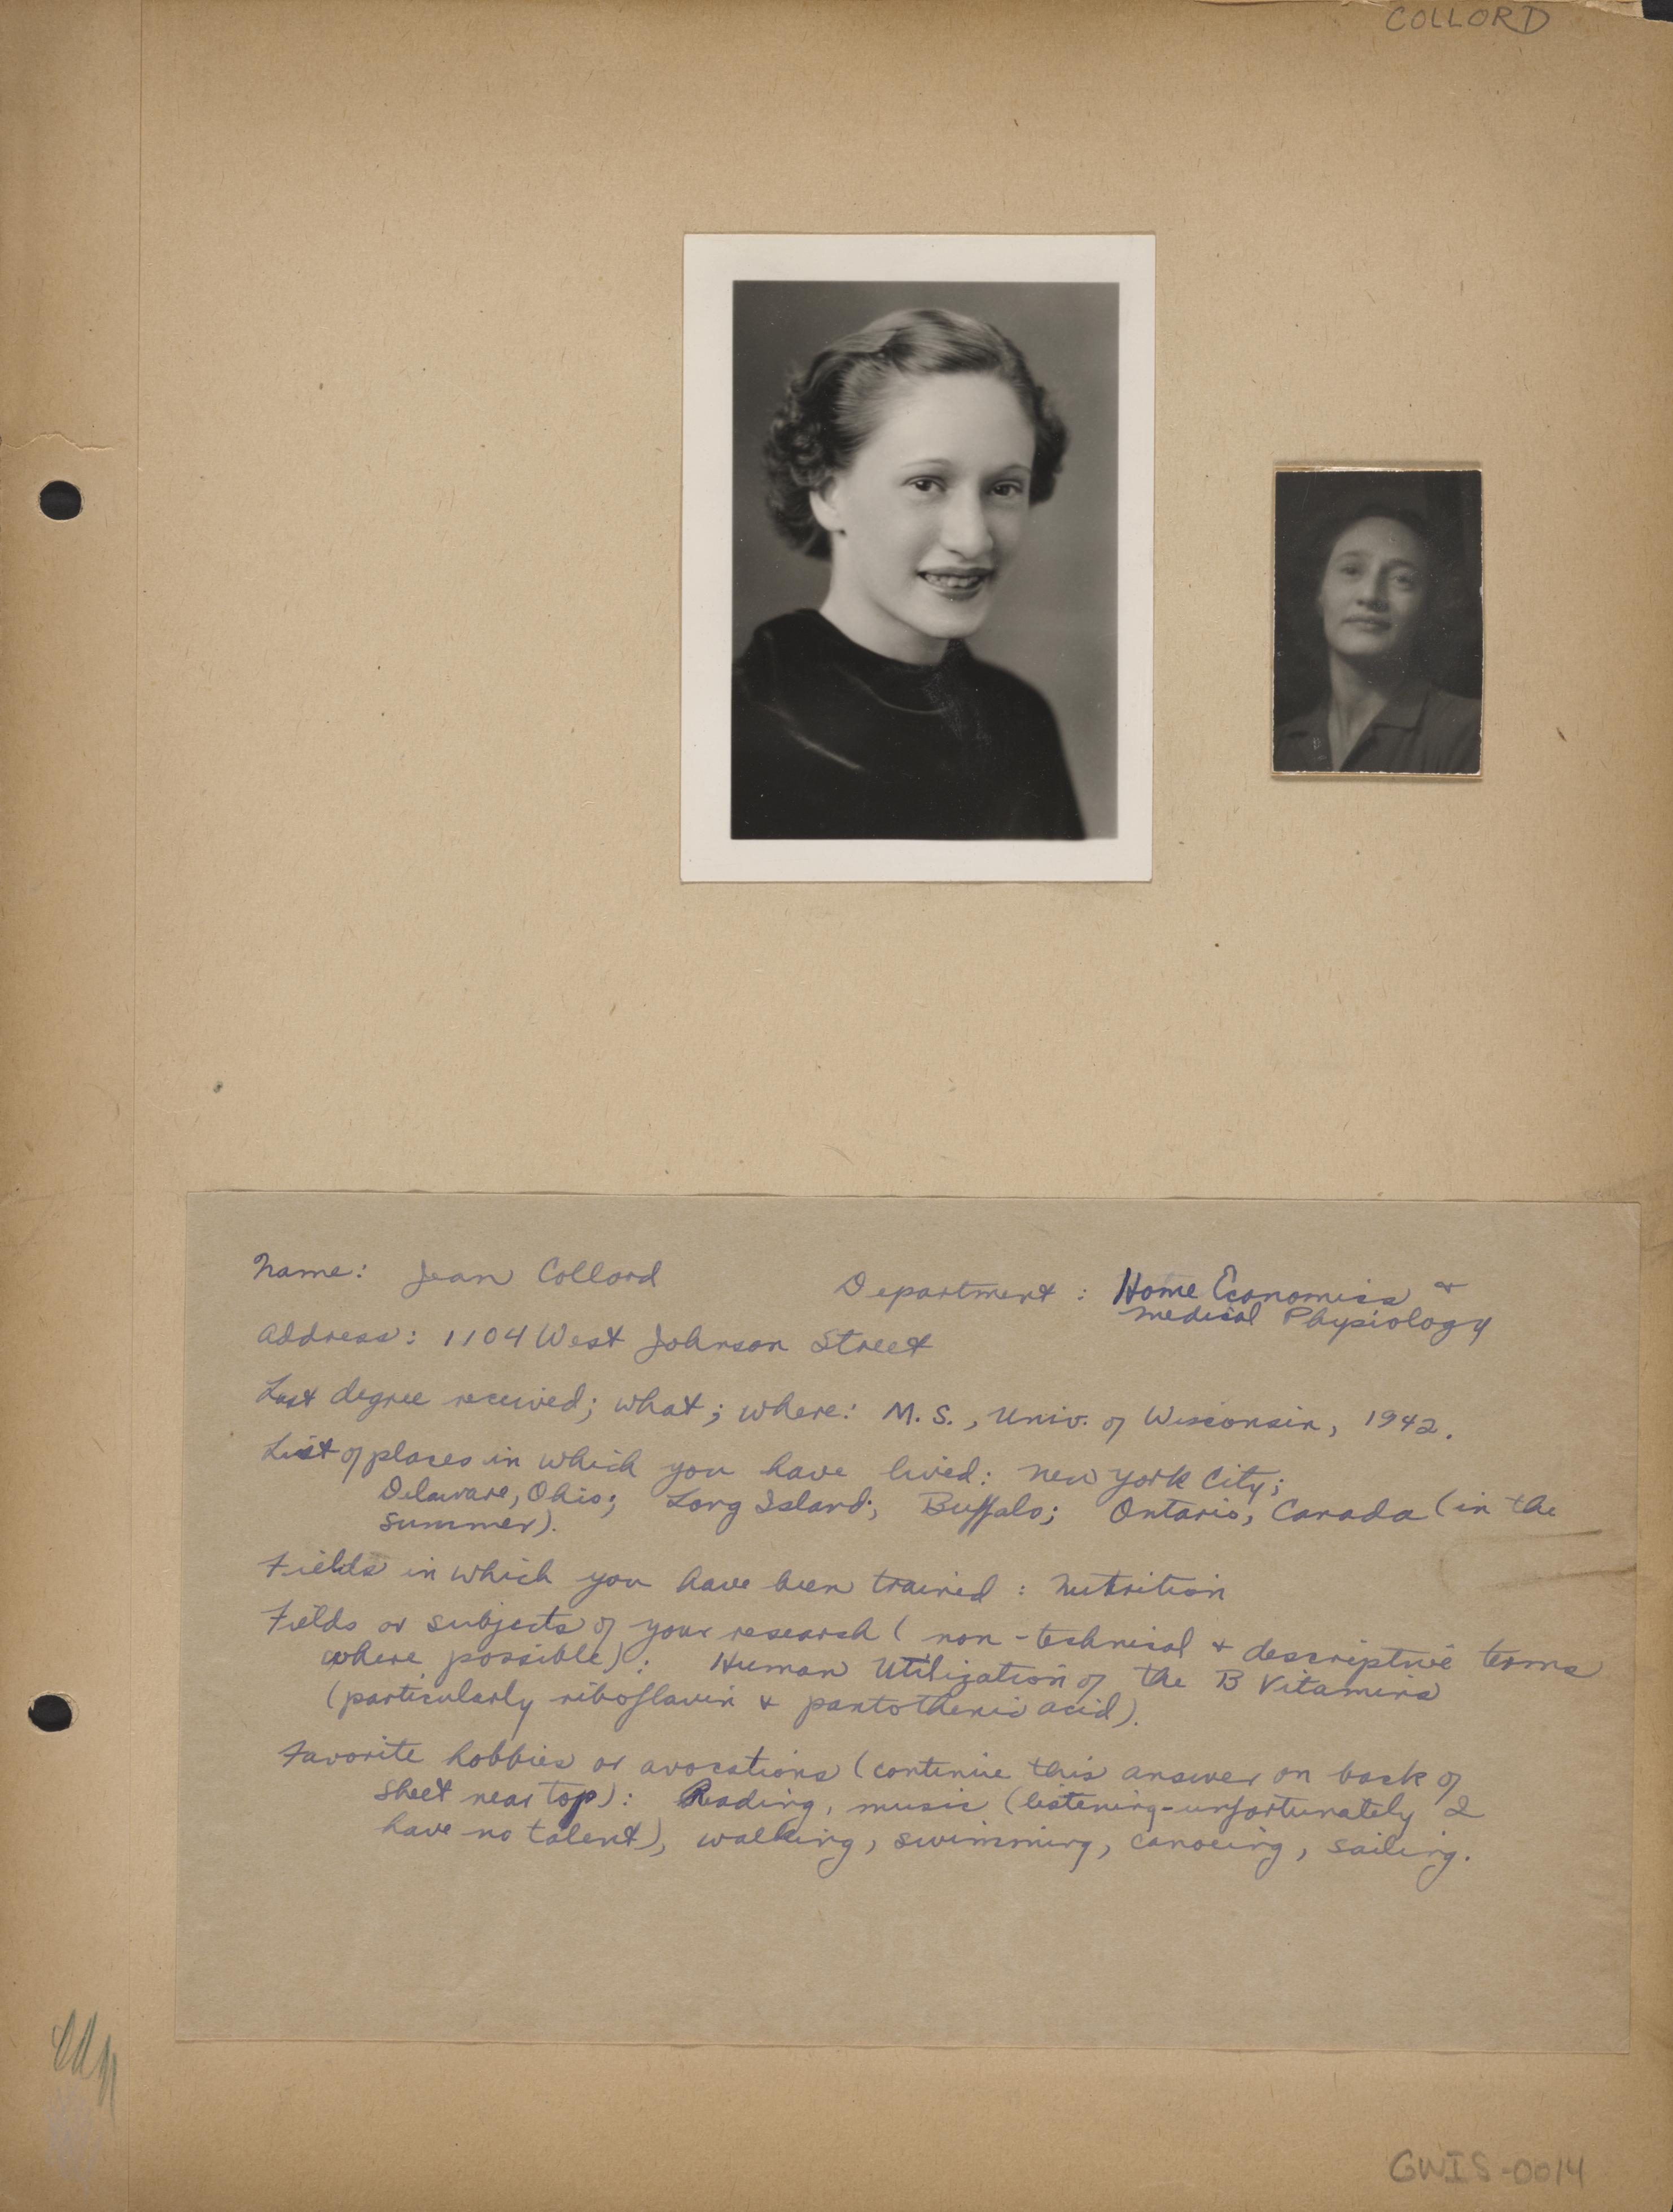 COLLORD
Name: Jean Collord Department: Home Economics &
Medical Physiology
Address: 1104 West Johnson Street
Last degree received; what; where: M.S., Univ. of Wisconsin, 1942.
List of places in which you have lived: New York City;
Delaware, Ohio; Long Island; Buffalo; Ontario, Canada (in the
summer).
Fields in which you have been trained: Nutrition
Fields or subjects of your research (non-technical & descriptive terms
where possible): Human Utilization of the B Vitamins
(particularly riboflavin & pantothenic acid).
Favorite hobbies or avocations (continue this answer on back of
sheet near top): Reading, music (listening-unfortunately I
have no talent), walking, swimming, canoeing, sailing.
GWIS-0014